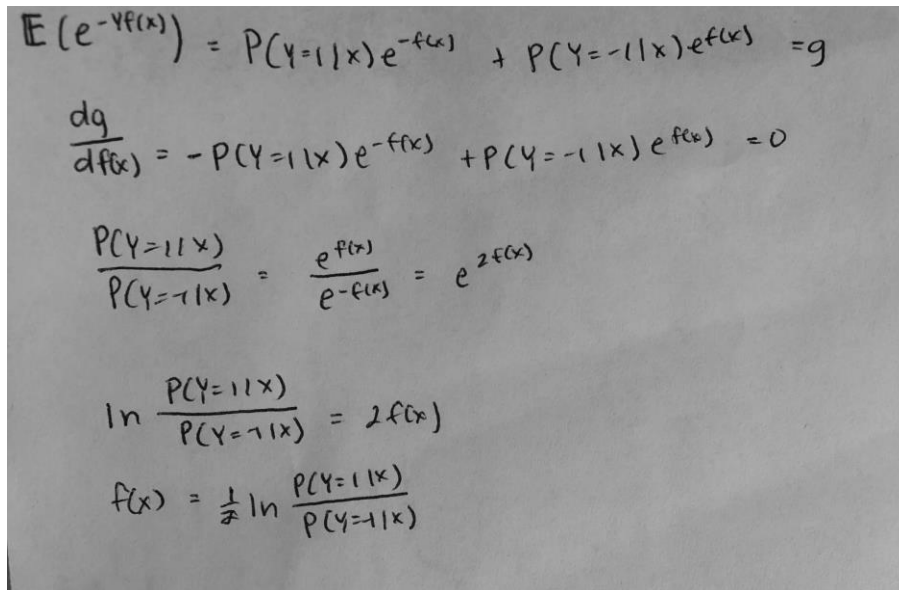 𝔼(e^{-Yf(x)}) = P(Y=1|x)e^{-f(x)} + P(Y=-1|x)e^{f(x)} = g
dg/df(x) = -P(Y=1|x)e^{-f(x)} + P(Y=-1|x)e^{f(x)} = 0
P(Y=1|x)/P(Y=-1|x) = e^{f(x)}/e^{-f(x)} = e^{2f(x)}
ln P(Y=1|x)/P(Y=-1|x) = 2f(x)
f(x) = 1/2 ln P(Y=1|x)/P(Y=-1|x)